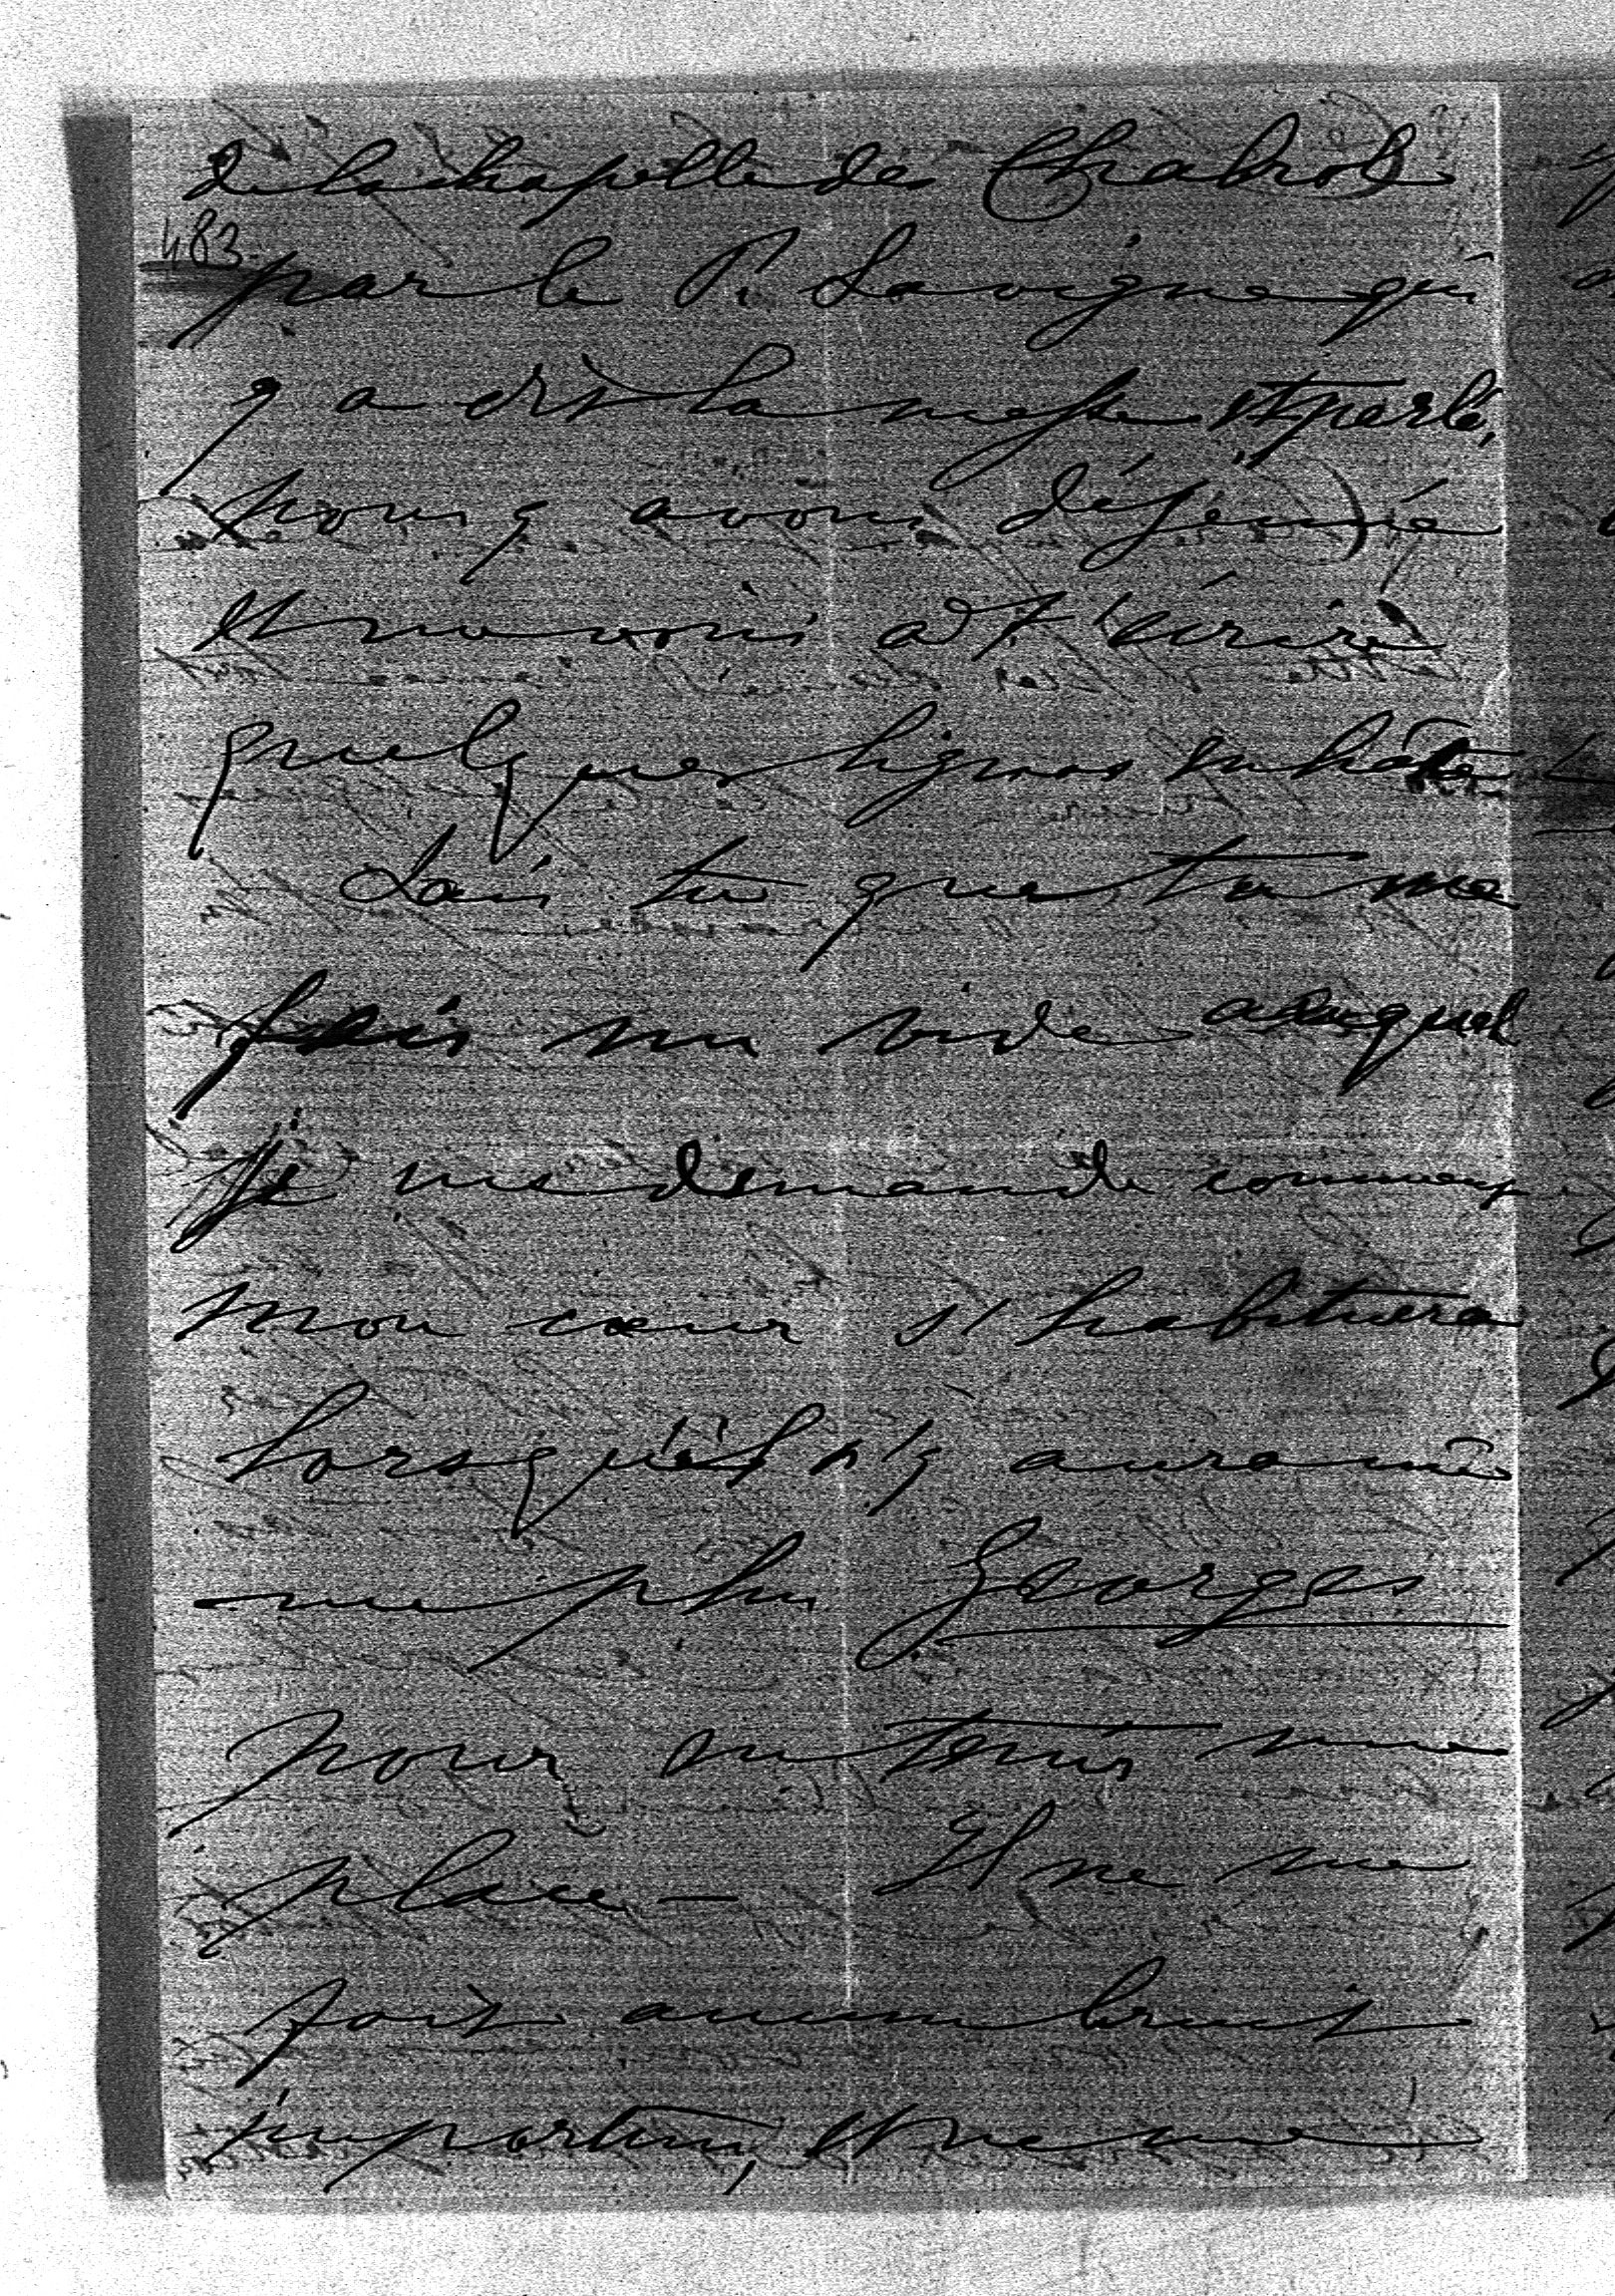 de la chapelle des Chabrol
483
par le P. Lavigne qui
y a dit la messe et parlé,
nous y avons déjeuné
et me voici à t'écrire
quelques lignes en hâte
Sais tu que tu me
fais un vide auquel
je me demande comment
mon cœur s'habituera
lorsqu'il n'y aura
me plus Georges
pour m tenir une
place — Il ne me
fait aucun bruit
importun, et ne me